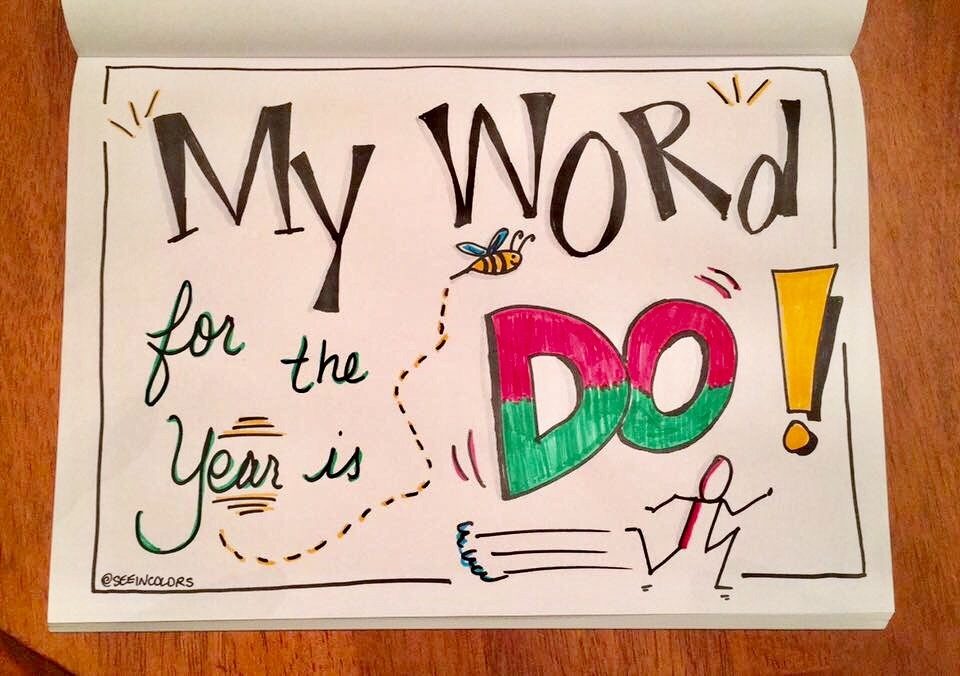 My WORd
for the
Year is
DO!
@SEEINCOLORS